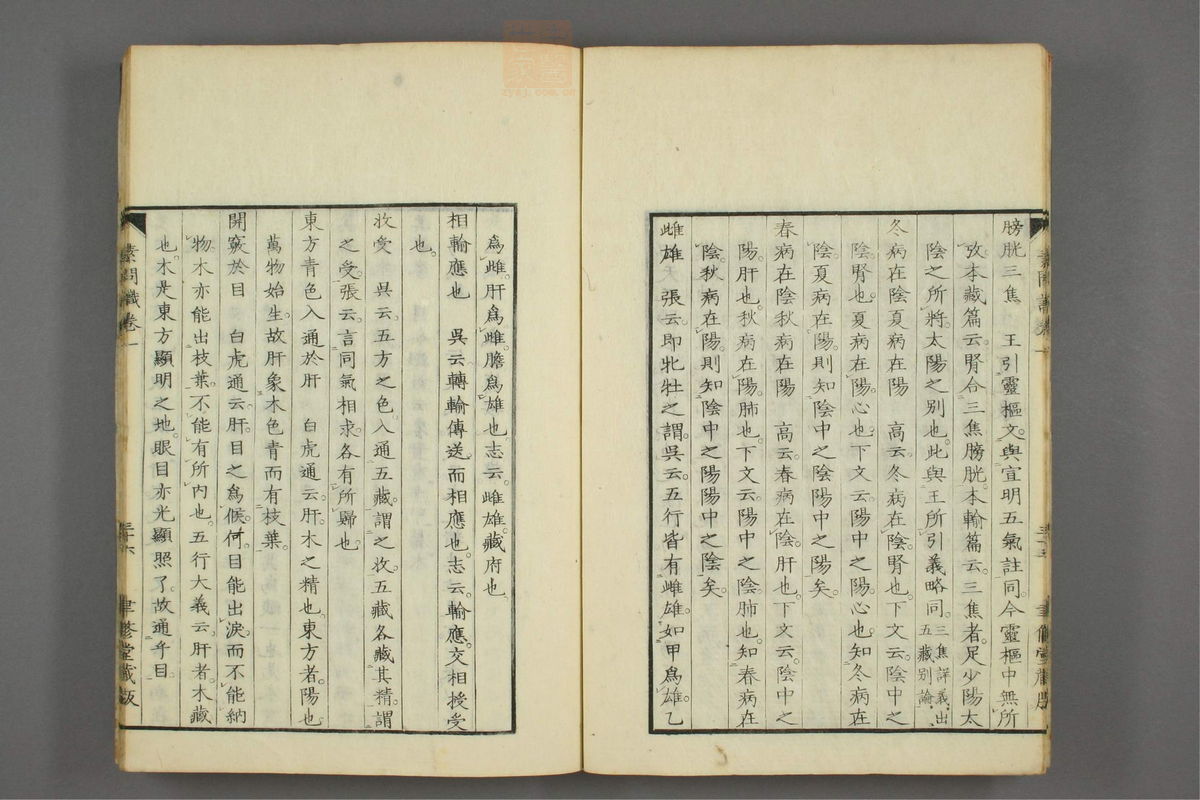 膀胱三焦　王引靈樞文與宣明五氣註同今靈樞中無所
攷本藏篇云腎合三焦膀胱本輸篇云三焦者足少陽太
陰之所將太陽之別也此與王所引義略同三焦詳義出五藏別論
冬病在陰夏病在陽　高云冬病在陰腎也下文云陰中之
陰腎也夏病在陽心也下文云陽中之陽心也知冬病在
陰夏病在陽則知陰中之陰陽中之陽矣
春病在陰秋病在陽　高云春病在陰肝也下文云陰中之
陽肝也秋病在陽肺也下文云陽中之陰肺也知春病在
陰秋病在陽則知陰中之陽陽中之陰矣
雌雄　張云即牝牡之謂吳云五行皆有雌雄如甲爲雄乙
爲雌肝爲雌膽爲雄也志云雌雄藏府也
相輸應也　吳云轉輸傳送而相應也志云輸應交相授受
也
收受　吳云五方之色入通五藏謂之收五藏各藏其精謂
之受張云言同氣相求各有所歸也
東方青色入通於肝　白虎通云肝木之精也東方者陽也
萬物始生故肝象木色青而有枝葉
開竅於目　白虎通云肝目之爲候何目能出淚而不能納
物木亦能出枝葉不能有所內也五行大義云肝者木藏
也木是東方顯明之地眼目亦光顯照了故通乎目
素問識卷一
三十六
聿修堂藏版